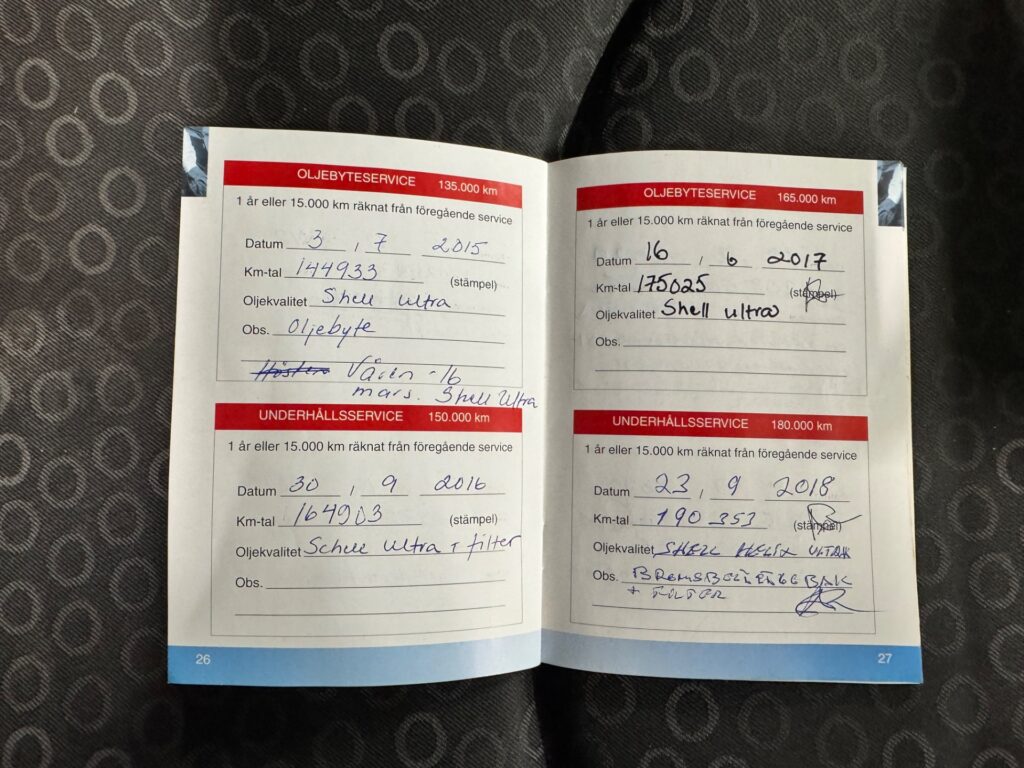 OLJEBYTESERVICE 135.000 km
1 år eller 15.000 km räknat från föregående service
Datum 3 , 7 2015
Km-tal 144933 (stämpel)
Oljekvalitet Shell Ultra
Obs. Oljebyte
Hösten Våren -16
mars. Shell Ultra
UNDERHÅLLSSERVICE 150.000 km
1 år eller 15.000 km räknat från föregående service
Datum 30 , 9 2016
Km-tal 164903 (stämpel)
Oljekvalitet Schell Ultra + filter
Obs.
26
OLJEBYTESERVICE 165.000 km
1 år eller 15.000 km räknat från föregående service
Datum 16 , 6 2017
Km-tal 175025 (stämpel)
Oljekvalitet Shell ultra
Obs.
UNDERHÅLLSSERVICE 180.000 km
1 år eller 15.000 km räknat från föregående service
Datum 23 , 9 2018
Km-tal 190353 (stämpel)
Oljekvalitet SHELL HELIX ULTRA
Obs. BAK
+ FILTER
27